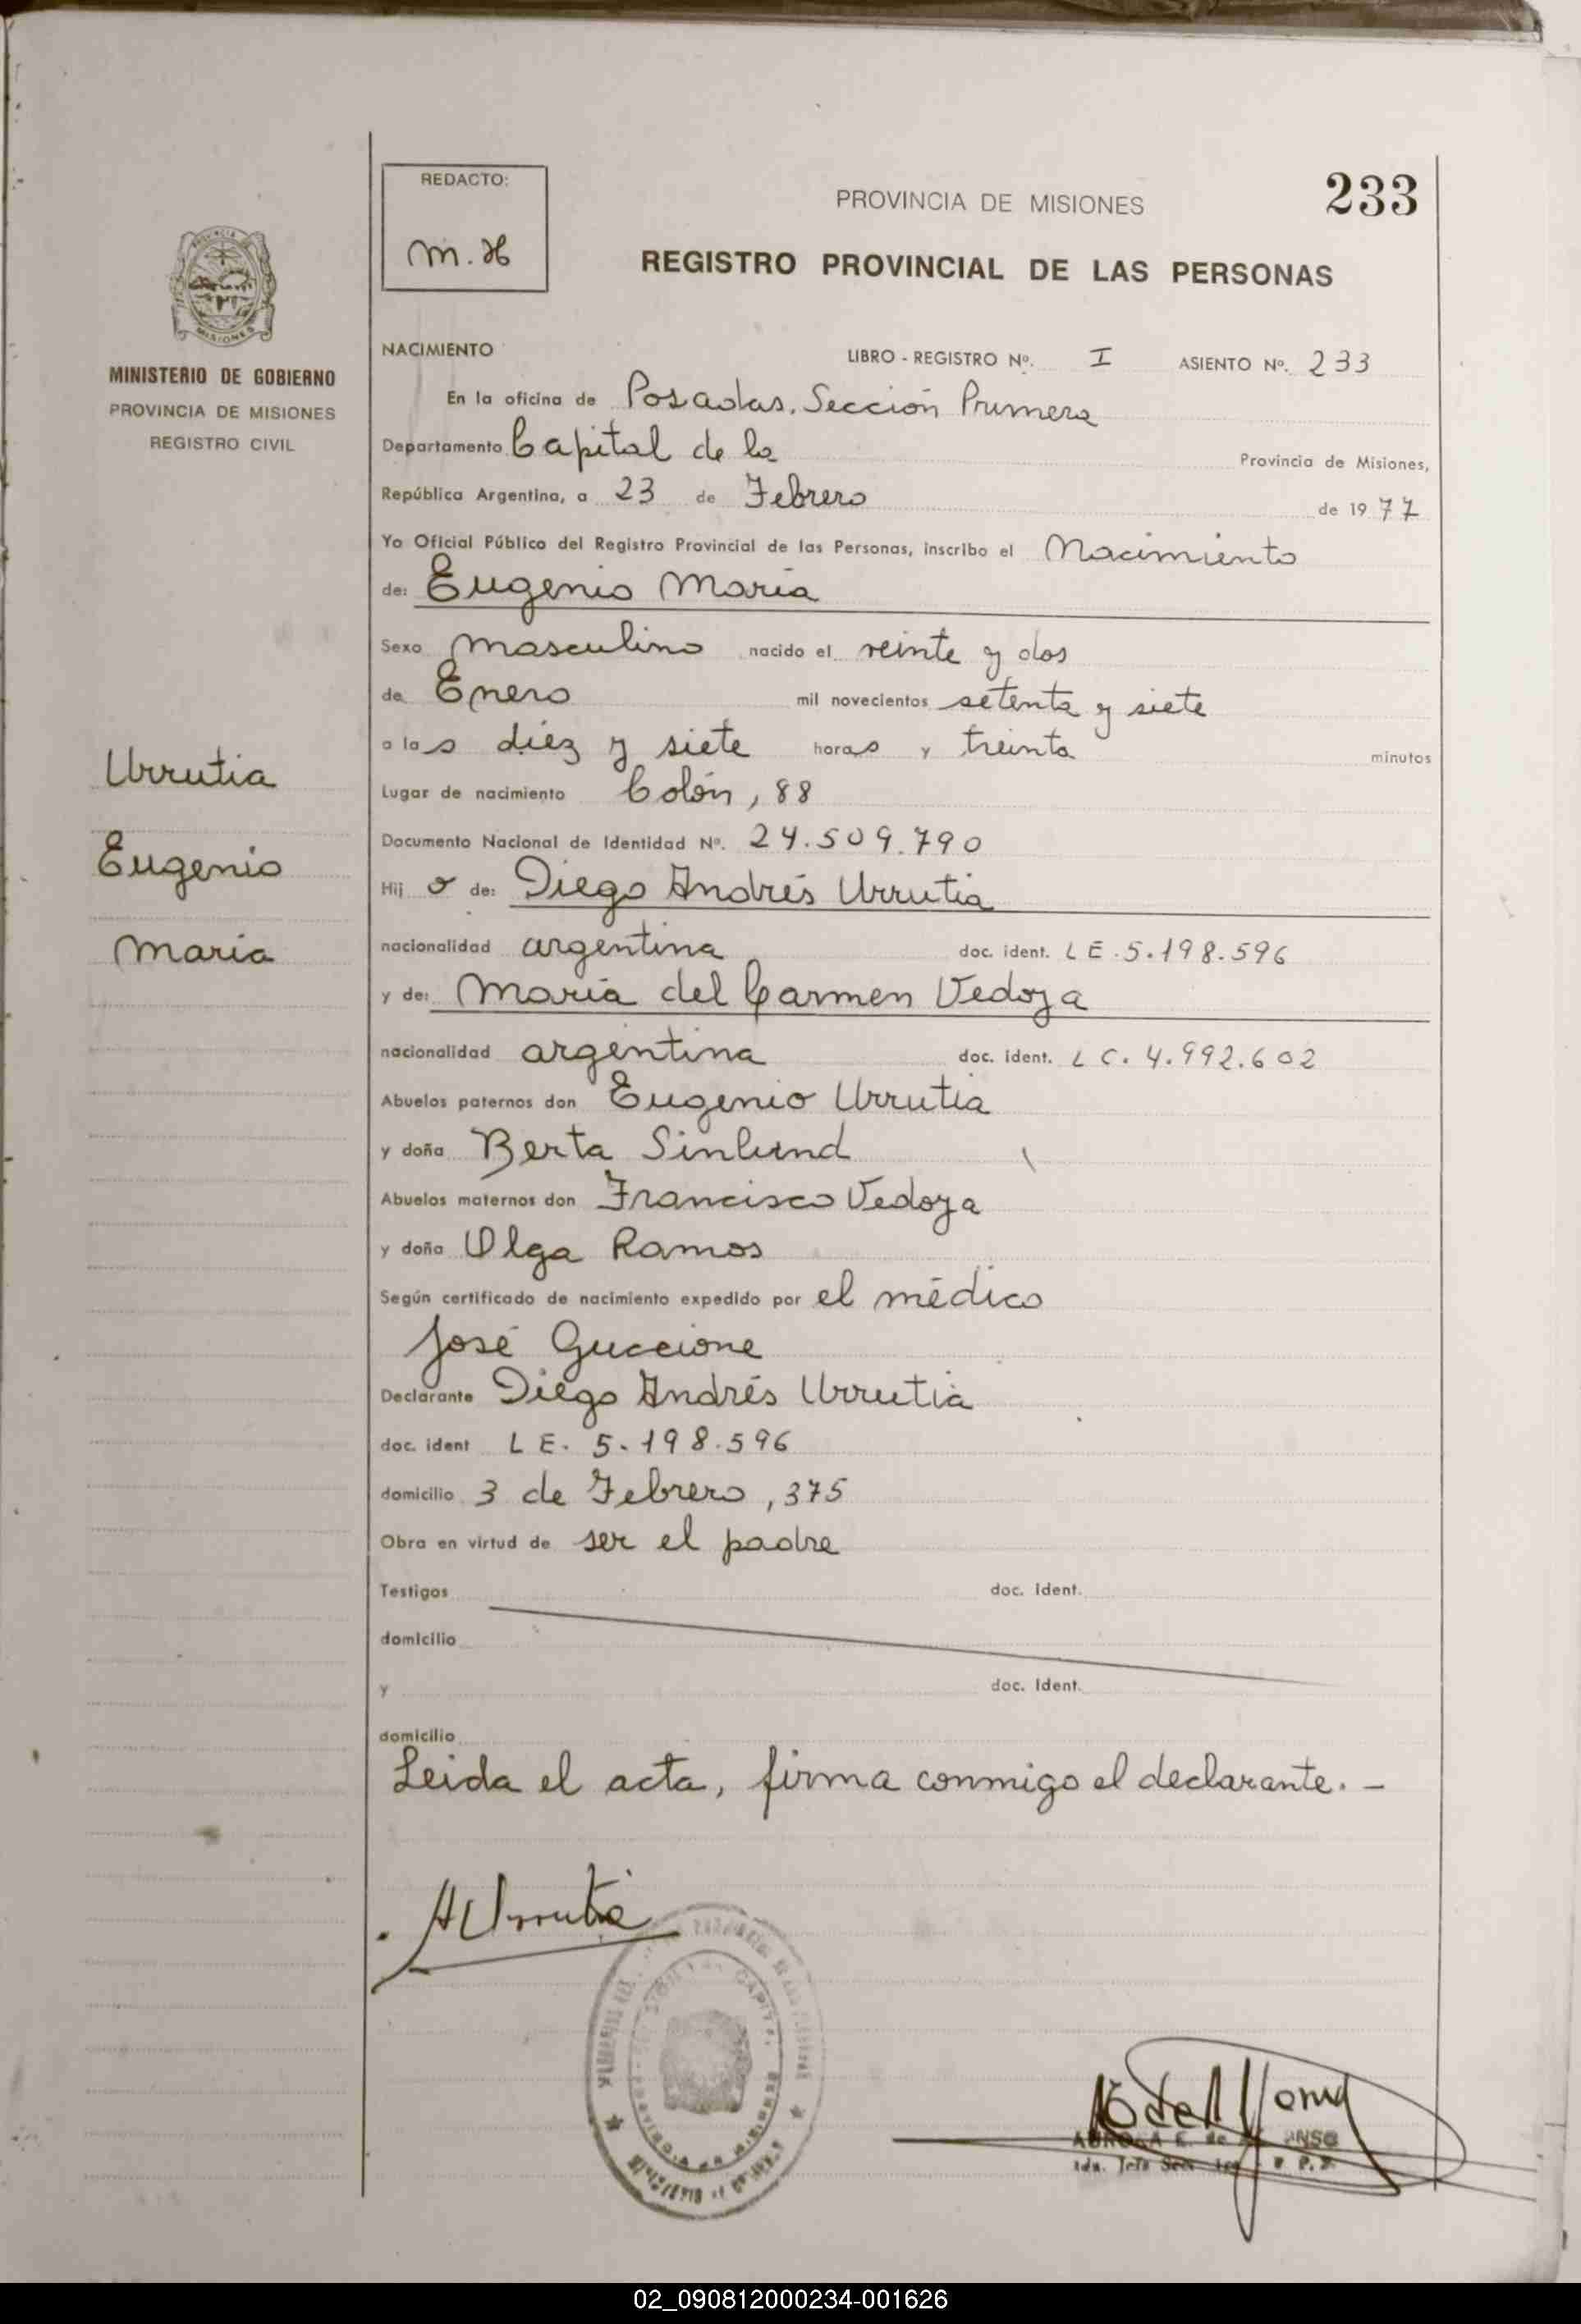 REDACTO:
M. H
PROVINCIA DE MISIONES
233
REGISTRO PROVINCIAL DE LAS PERSONAS
MINISTERIO DE GOBIERNO
PROVINCIA DE MISIONES
REGISTRO CIVIL
NACIMIENTO LIBRO - REGISTRO Nº. I ASIENTO Nº. 233
En la oficina de Posadas, Sección Primera
Departamento Capital de la Provincia de Misiones,
República Argentina, a 23 de Febrero de 1977
Yo Oficial Público del Registro Provincial de las Personas, inscribo el Nacimiento
de: Eugenio María
Sexo masculino nacido el veinte y dos
de Enero mil novecientos setenta y siete
a las diez y siete horas y treinta minutos
Lugar de nacimiento Colón, 88
Documento Nacional de Identidad Nº. 24.509.790
Hijo de: Diego Andrés Urrutia
nacionalidad argentina doc. ident. LE.5.198.596
y de: María del Carmen Vedoya
nacionalidad argentina doc. ident. LC. 4.992.602
Abuelos paternos don Eugenio Urrutia
y doña Berta Sinlund
Abuelos maternos don Francisco Vedoya
y doña Olga Ramos
Según certificado de nacimiento expedido por el médico
José Guccione
Declarante Diego Andrés Urrutia
doc. ident LE. 5.198.596
domicilio 3 de Febrero, 375
Obra en virtud de ser el padre
Testigos doc. ident.
domicilio
y doc. ident.
domicilio
Leida el acta, firma conmigo el declarante. -
Urrutia
Eugenio
María
AUrrutia
AURORA E. de
02_090812000234-001626